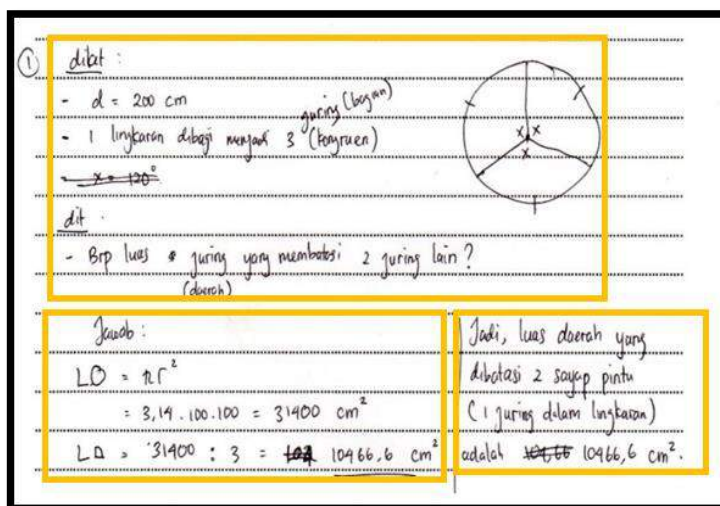 1 dibat :
- d = 200 cm
- 1 lingkaran dibagi menjadi 3 juring (bagian) (kongruen)
- x = 120°
dit .
- Brp luas juring yang membatasi 2 juring lain?
(daerah)
x x
x
Jawab :
L○ = πr²
= 3,14 . 100.100 = 31400 cm²
L△ = 31400 : 3 = 10466,6 cm²
Jadi, luas daerah yang
dibatasi 2 sayap pintu
(1 juring dalam lingkaran)
adalah 10466 10466,6 cm².